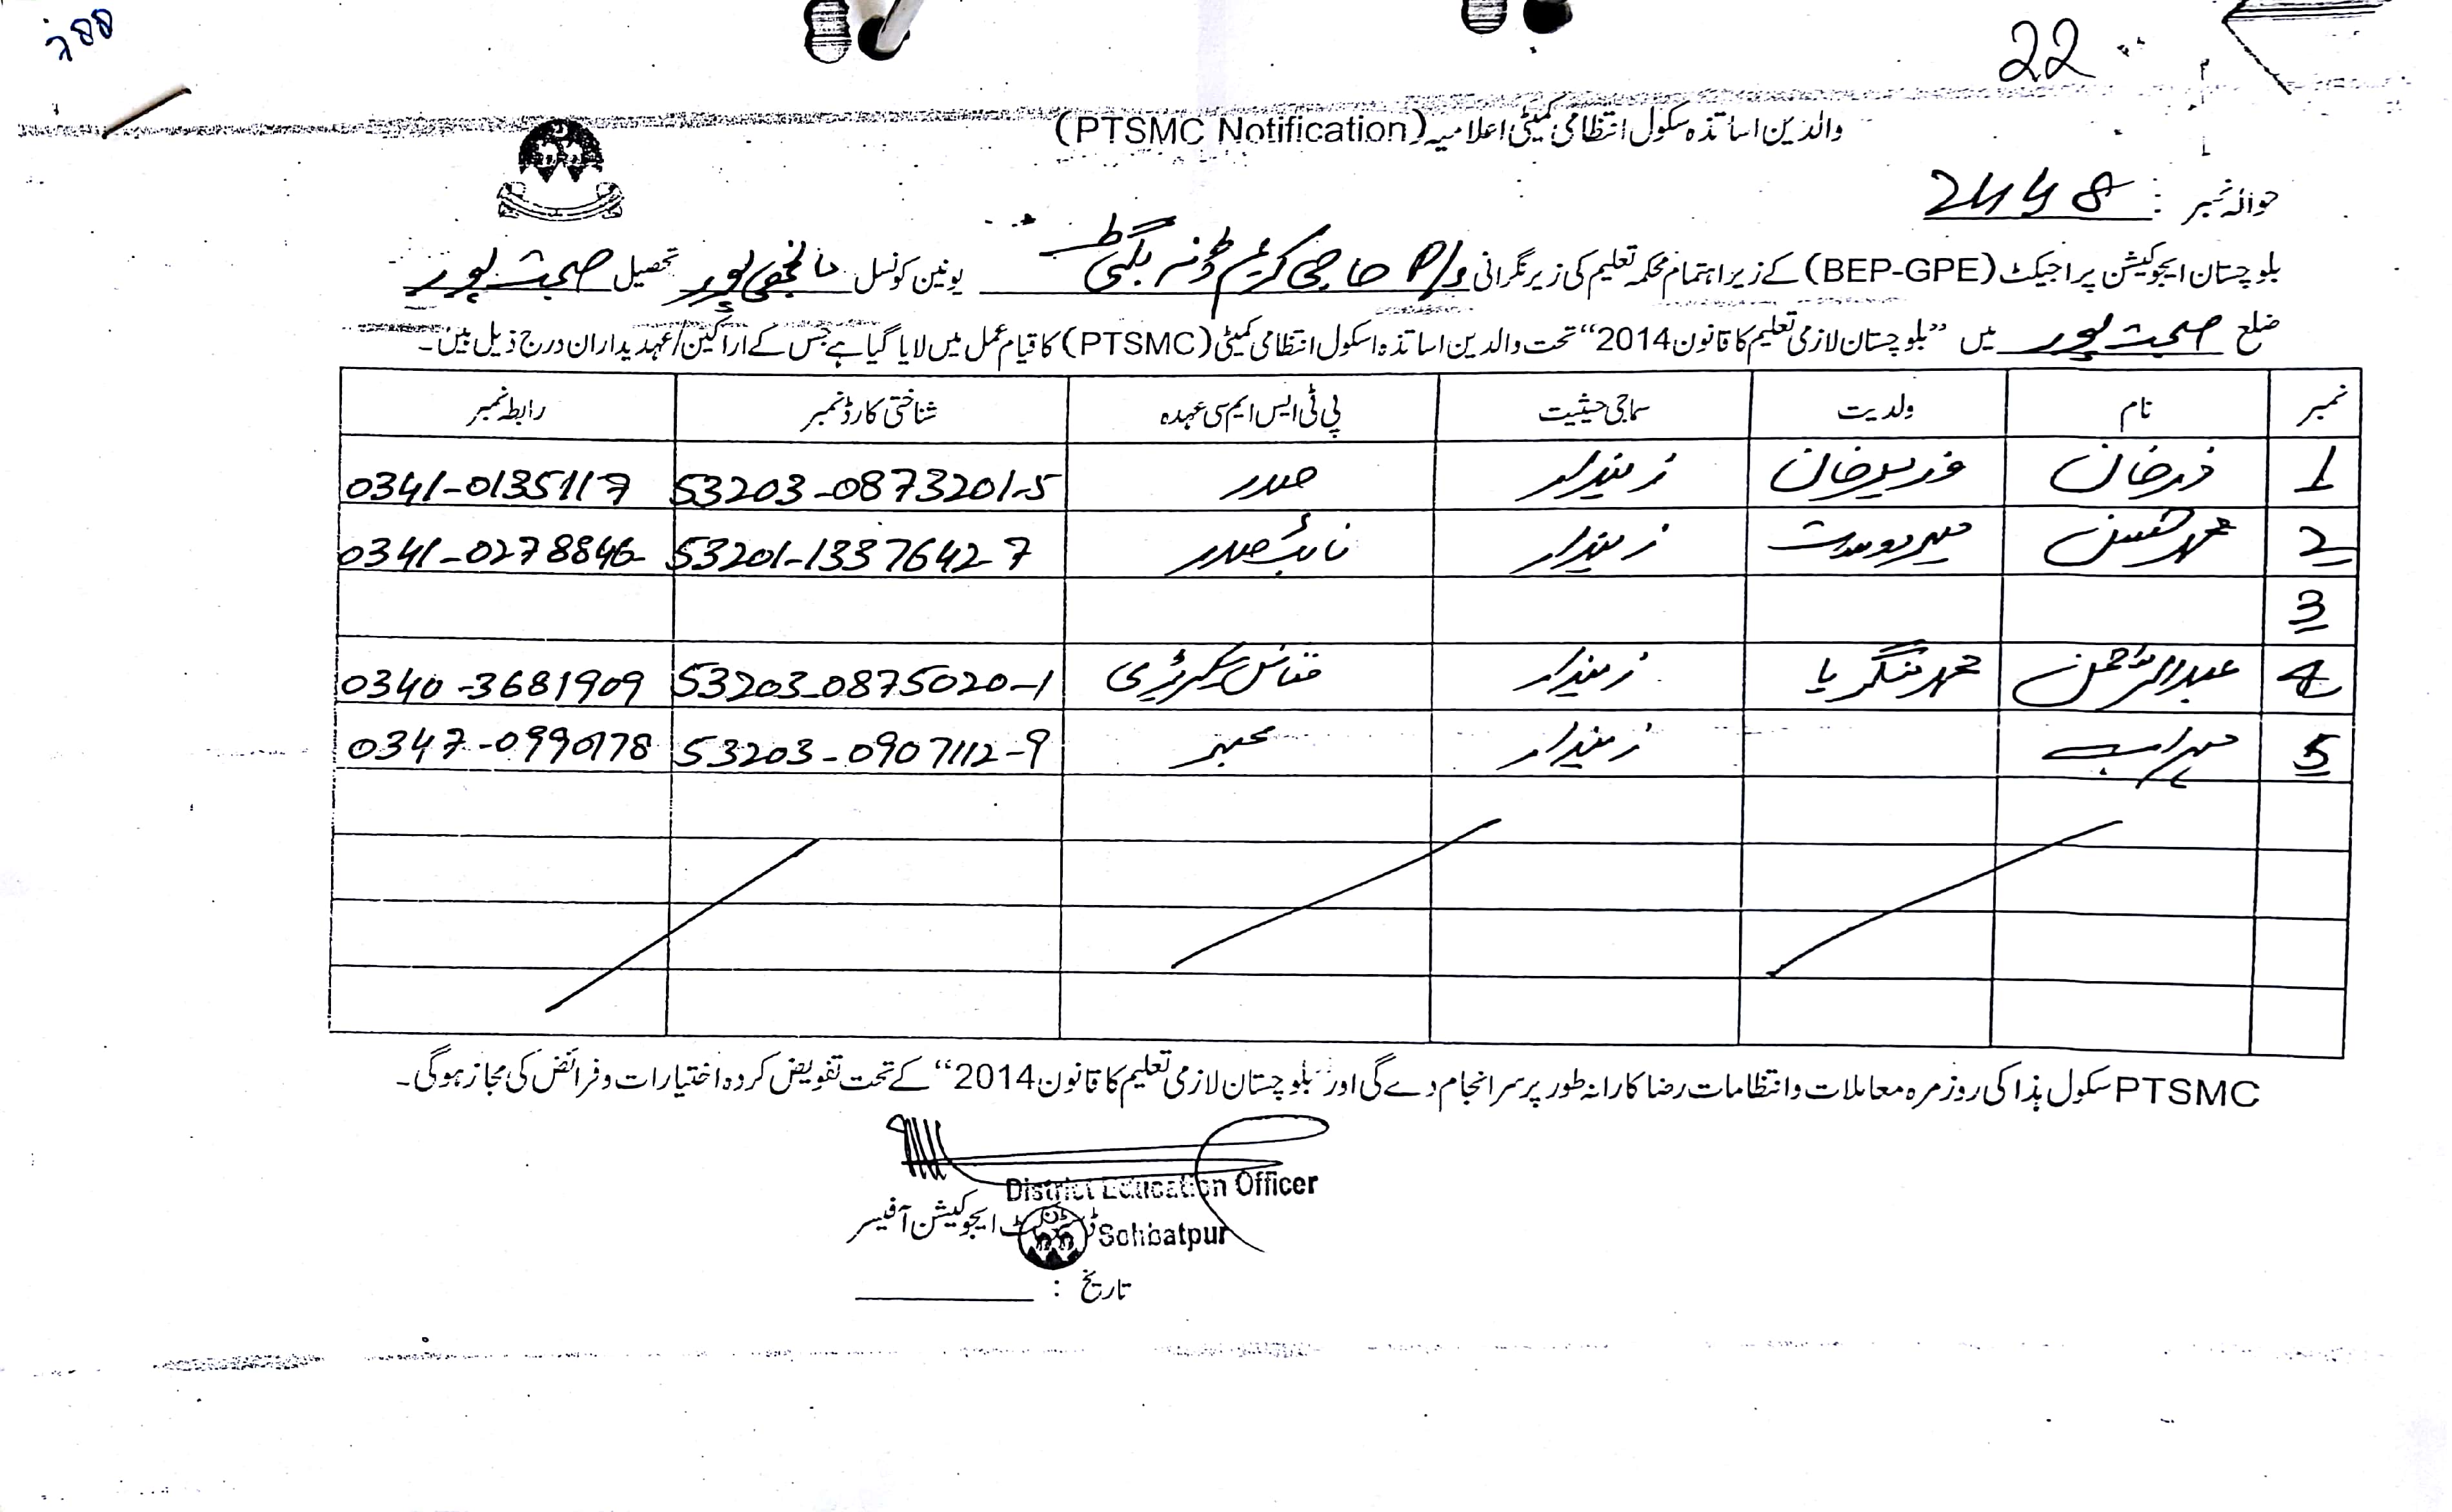 22
والدین اساتذہ سکول انتظامی کمیٹی اعلامیہ (PTSMC Notification)
حوالہ نمبر : 2448
بلوچستان ایجوکیشن پراجیکٹ (BEP-GPE) کے زیر اہتمام محکمہ تعلیم کی زیر نگرانی حاجی کریم ڈنہ بگٹی یونین کونسل مانجھی پور تحصیل صحبت پور
ضلع صحبت پور میں "بلوچستان لازمی تعلیم کا قانون 2014" تحت والدین اساتذہ اسکول انتظامی کمیٹی (PTSMC) کا قیام عمل میں لایا گیا ہے جس کے اراکین/عہدیداران درج ذیل ہیں۔
نمبر نام ولدیت سماجی حیثیت پی ٹی ایس ایم سی عہدہ شناختی کارڈ نمبر رابطہ نمبر
1 زمیندار صدر 53203-0873201-5 0341-0135117
2 زمیندار نائب صدر 53201-1337642-7 0341-0278846
3
4 عبدالرحمن زمیندار فنانس سیکرٹری 53203-0875020-1 0340-3681909
5 زمیندار ممبر 53203-0907112-9
PTSMC سکول ہٰذا کی روز مرہ معاملات و انتظامات رضا کارانہ طور پر سرانجام دے گی اور "بلوچستان لازمی تعلیم کا قانون 2014" کے تحت تفویض کردہ اختیارات و فرائض کی مجاز ہوگی۔
District Education Officer
ڈسٹرکٹ ایجوکیشن آفیسر
Sohbatpur
تاریخ :